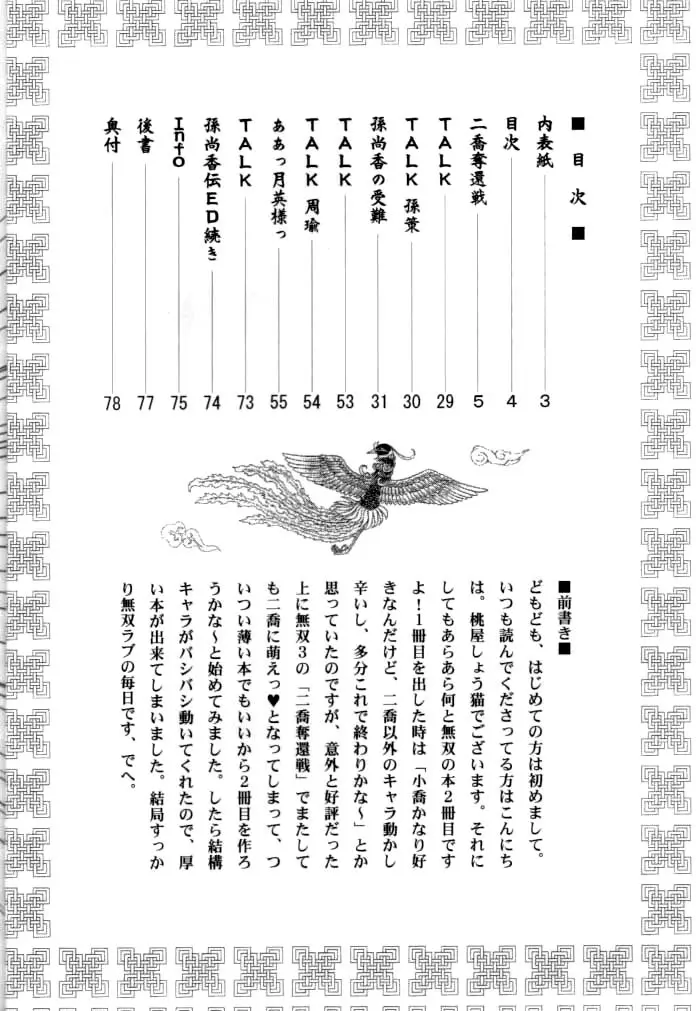 ■目次■
内表紙 3
目次 4
二喬奪還戦 5
TALK 29
TALK 孫策 30
孫尚香の受難 31
TALK 53
TALK 周瑜 54
ああっ月英様っ 55
TALK 73
孫尚香伝ED続き 74
Info 75
後書 77
奥付 78
■前書き■
どもども、はじめての方は初めまして。
いつも読んでくださってる方はこんにち
は。桃屋しょう猫でございます。それに
してもあらあら何と無双の本2冊目です
よ！1冊目を出した時は「小喬かなり好
きなんだけど、二喬以外のキャラ動かし
辛いし、多分これで終わりかな～」とか
思っていたのですが、意外と好評だった
上に無双3の「二喬奪還戦」でまたして
も二喬に萌えっ♥となってしまって、つ
いつい薄い本でもいいから2冊目を作ろ
うかな～と始めてみました。したら結構
キャラがバシバシ動いてくれたので、厚
い本が出来てしまいました。結局すっか
り無双ラブの毎日です、でへ。